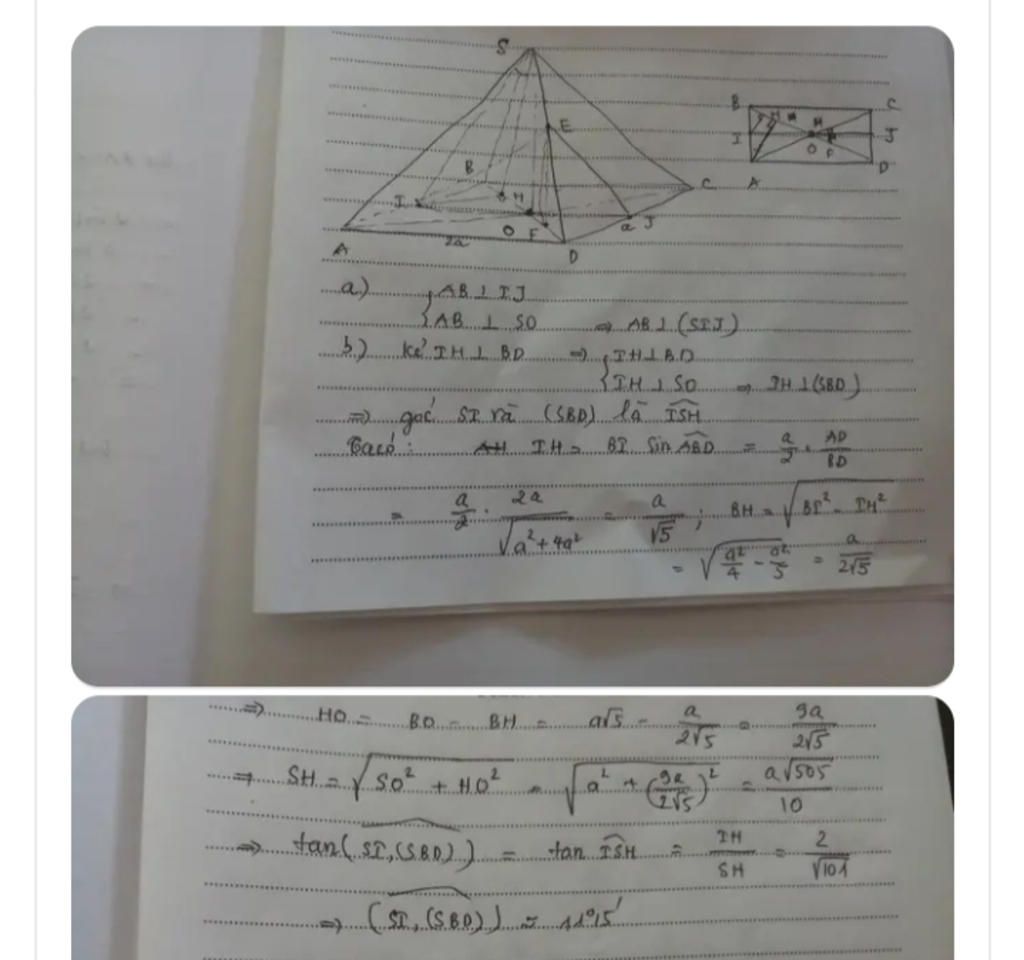 S
E
B
C
I
H
J
O
F
A
D
2a
a
B
C
H
M
I
J
O
F
A
D
a) { AB ⊥ IJ
{ AB ⊥ SO ⇒ AB ⊥ (SIJ)
b) kẻ IH ⊥ BD ⇒ { IH ⊥ BD
{ IH ⊥ SO ⇒ IH ⊥ (SBD)
⇒ góc SI và (SBD) là ISH
Ta có: IH = BI. Sin ABD = a/2 . AD/BD
= a/2 . 2a/√(a²+4a²) = a/√5 ; BH = √(BI² - IH²)
= √(a²/4 - a²/5) = a/2√5
⇒ HO = BO - BH = a√5 - a/2√5 = 9a/2√5
⇒ SH = √(SO² + HO²) = √(a² + (9a/2√5)²) = a√505/10
⇒ tan(SI,(SBD)) = tan ISH = IH/SH = 2/√101
⇒ (SI,(SBD)) ≈ 11°15'